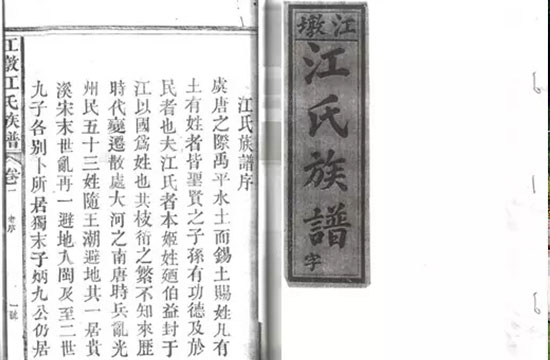 江墩
江氏族譜
字
江氏族譜序
虞唐之際禹平水土而錫土賜姓凡有
土有姓者皆聖賢之子孫有功德及於
民者也夫江氏者本姬姓廼伯益封于
江以國爲姓也其枝衍之繁不知來歷
時代變遷散處大河之南唐時兵亂光
州民五十三姓隨王潮避地其一居貴
溪宋末世亂再一避地入閩及至二世
九子各別卜所居獨末子炳九公仍居
江墩江氏族譜
卷一